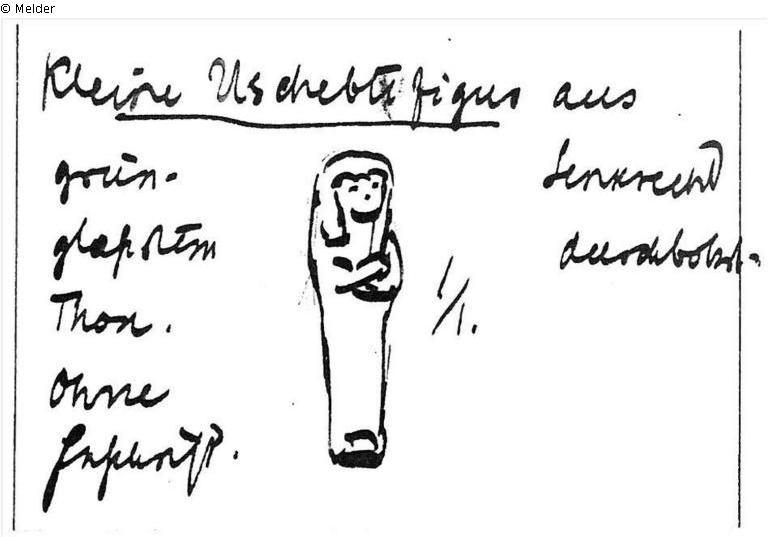 © Melder
Kleine Uschebtifigur aus
grün-
glasirtem
Thon.
Ohne
Inschrift.
Senkrecht
durchbohrt.
1/1.